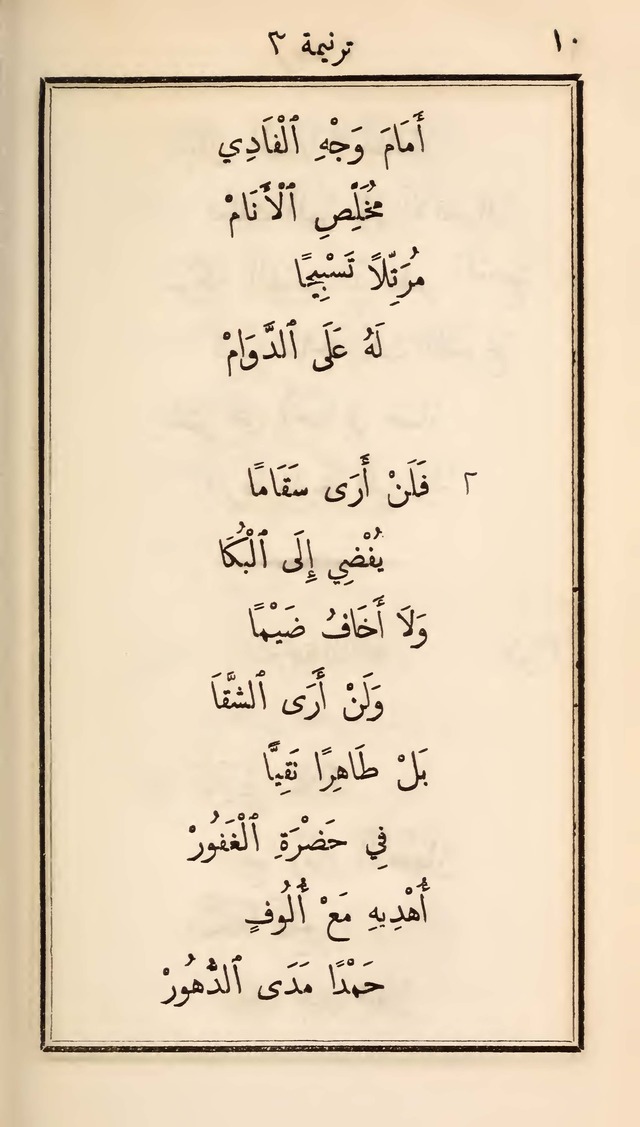 ١٠ ترنيمة ٣
أَمَامَ وَجْهِ ٱلْفَادِي
مُخَلِّصِ ٱلْأَنَامْ
مُرَتِّلاً تَسْبِيحًا
لَهُ عَلَى ٱلدَّوَامْ
٢ فَلَنْ أَرَى سَقَامًا
يُفْضِي إِلَى ٱلْبُكَا
وَلاَ أَخَافُ ضَيْمًا
وَلَنْ أَرَى ٱلشَّقَا
بَلْ طَاهِرًا نَقِيًّا
فِي حَضْرَةِ ٱلْغَفُورْ
أُهْدِيهِ مَعْ أُلُوفٍ
حَمْدًا مَدَى ٱلدُّهُورْ